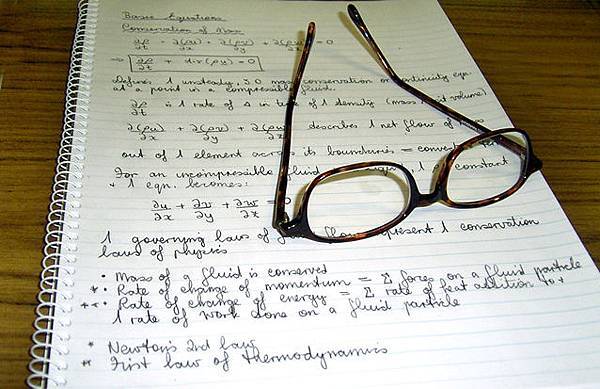 Basic Equations
Conservation of Mass
∂ρ/∂t + ∂(ρu)/∂x + ∂(ρv)/∂y + ∂(ρw)/∂z = 0
⇒ ∂ρ/∂t + div(ρu) = 0
Defines 1 unsteady, 3D mass conservation or continuity eqn.
at a point in a compressible fluid.
∂ρ/∂t is 1 rate of Δ in time of 1 density (mass volume)
∂(ρu)/∂x + ∂(ρv)/∂y + ∂(ρw) describes 1 net flow of
out of 1 element across its boundaries = convec
For an incompressible fluid 1 constant
+ 1 eqn. becomes:
∂u/∂x + ∂v/∂y + ∂w/∂z = 0
1 governing laws of flow represent 1 conservation
laws of physics
• Mass of a fluid is conserved
* • Rate of change of momentum = Σ forces on a fluid particle
** • Rate of change of energy = Σ rate of heat addition to +
1 rate of work done on a fluid particle
* Newton's 2nd law
** First law of thermodynamics